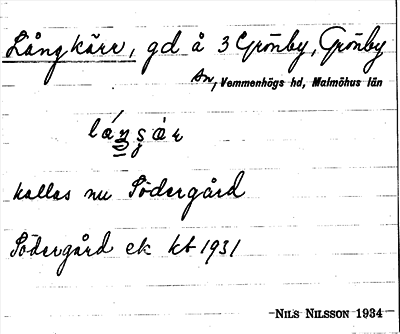 Långkärr, gd å 3 Grönby, Grönby
sn, Vemmenhögs hd, Malmöhus län
kallas nu Södergård
Södergård ek kt 1931
NILS NILSSON 1934